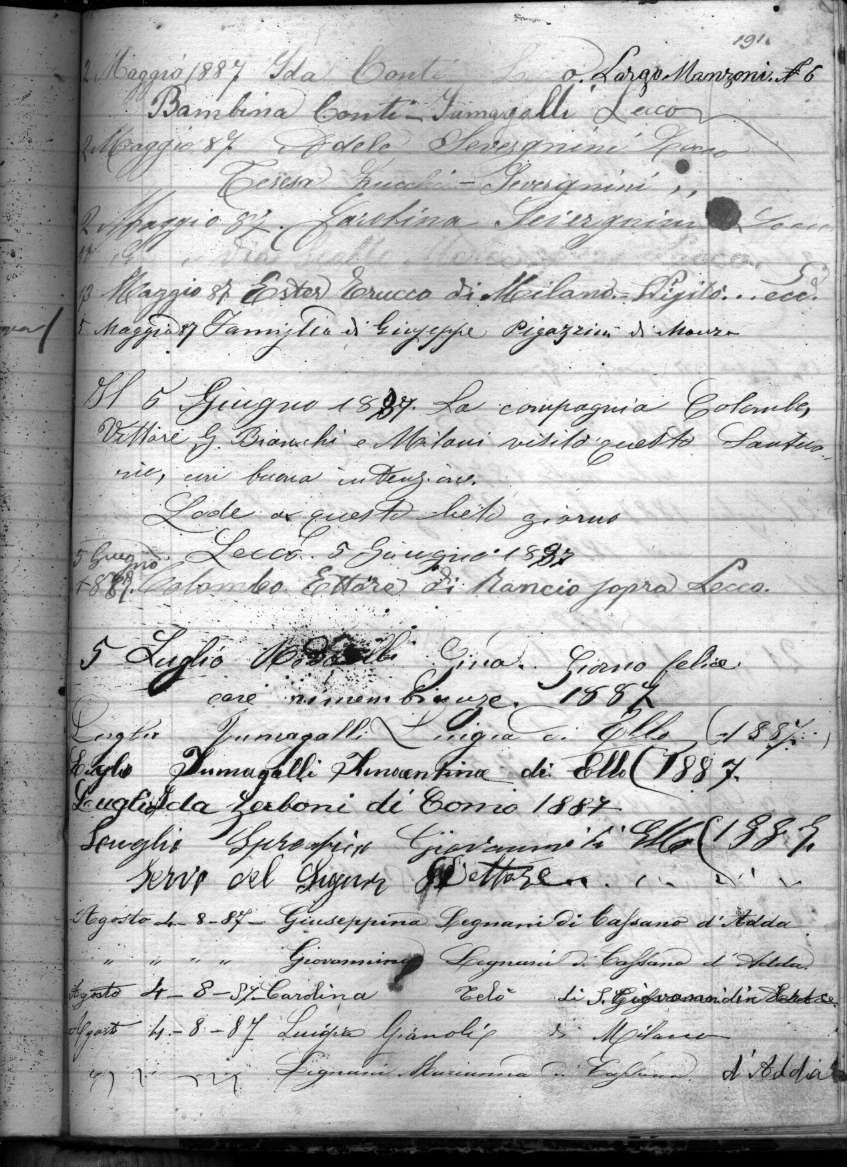 191
2 Maggio 1887 Ida Conti Lecco. Largo Manzoni. N 6
Bambina Conti - Fumagalli Lecco
2 Maggio 87 Adele Severgnini
Teresa Zucchi - Severgnini ,,
2 Maggio 87. Carolina Severgnini Lecco
13 Maggio 87 Ester Erucco di Milano
5 Maggio 87 Famiglia di Giuseppe Pigazzini di Monza
Il 5 Giugno 1887. La compagnia Colombo,
Vittore G. Bianchi e Milani visitò questo Santua-
rio, con buona intenzione.
Lode a questo lieto giorno
Lecco. 5 Giugno. 1887
5 Giugno
1887. Colombo Ettore di Rancio sopra Lecco.
5 Luglio Gina. Giorno felice
care rimembranze. 1887
Luglio Fumagalli Luigia di Ello (1887.)
Luglio Fumagalli di Ello (1887.
Luglio Ida Zerboni di Como 1887
Luglio Giovanni di Ello (1887,
Servo del Signor
Agosto 4-8-87- Giuseppina Legnani di Cassano d'Adda
" " " " Giovannina Legnani di Cassano d'Adda
Agosto 4-8-87- Carolina Telò di S. Giovanni in
Agosto 4-8-87 Luigia Gianoli di Milano
" " " Legnani Marianna di Cassano d'Adda